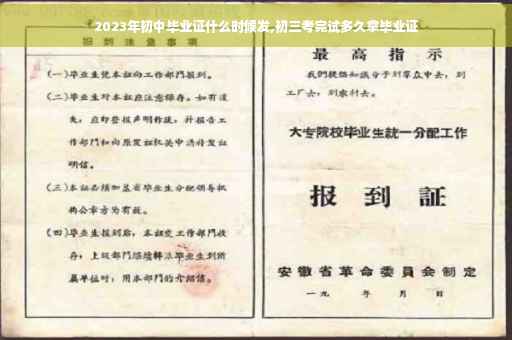 2023年初中毕业证什么时候发,初三考完试多久拿毕业证
报到注意事项
(一)毕业生凭本证向工作部门报到。
(二)毕业生对本证应注意保存。如有遗
失,应即登报声明作废,并报告工
作部门和向原发证机关申请补发证
明信。
(三)本证必须加盖省毕业生分配领导机
构公章方为有效。
(四)毕业生报到后,本证交工作部门收
存;上级部门继续转派毕业生到所
属单位时,用本部门的介绍信。
最高指示
我们提倡知识分子到群众中去,到
工厂去,到农村去。
大专院校毕业生统一分配工作
报到证
安徽省革命委员会制定
一九 年 月 日